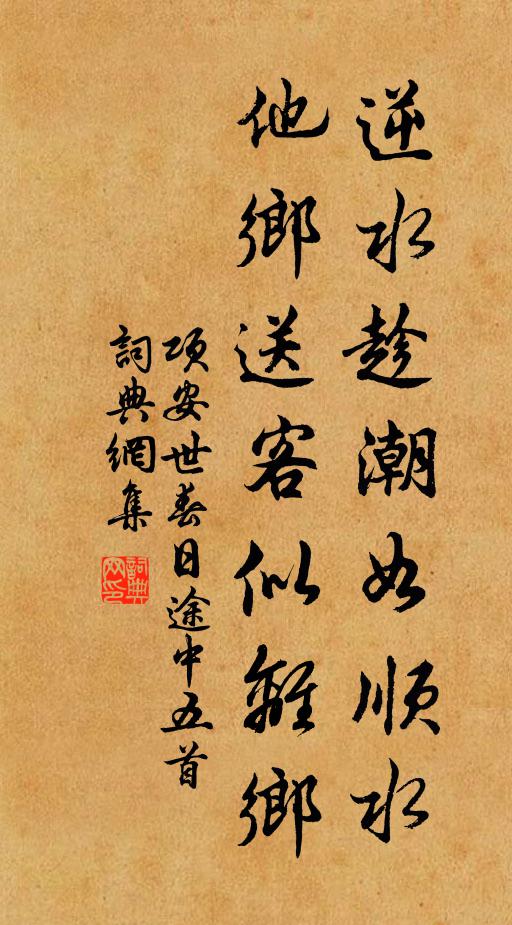 逆水趁潮如順水
他鄉送客似離鄉
項安世春日途中五首
詞典網集
詞典网印